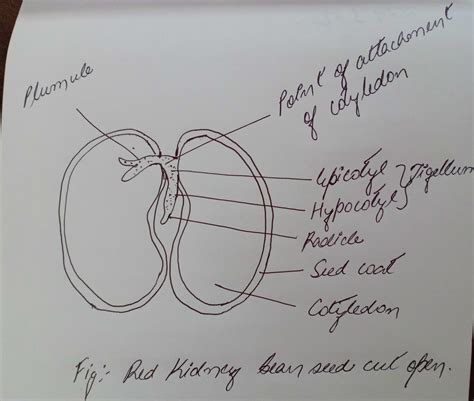 Plumule
Point of attachment
of cotyledon
Epicotyl
Hypocotyl
Tigellum
Radicle
Seed coat
Cotyledon
Fig:- Red Kidney bean seed cut open.